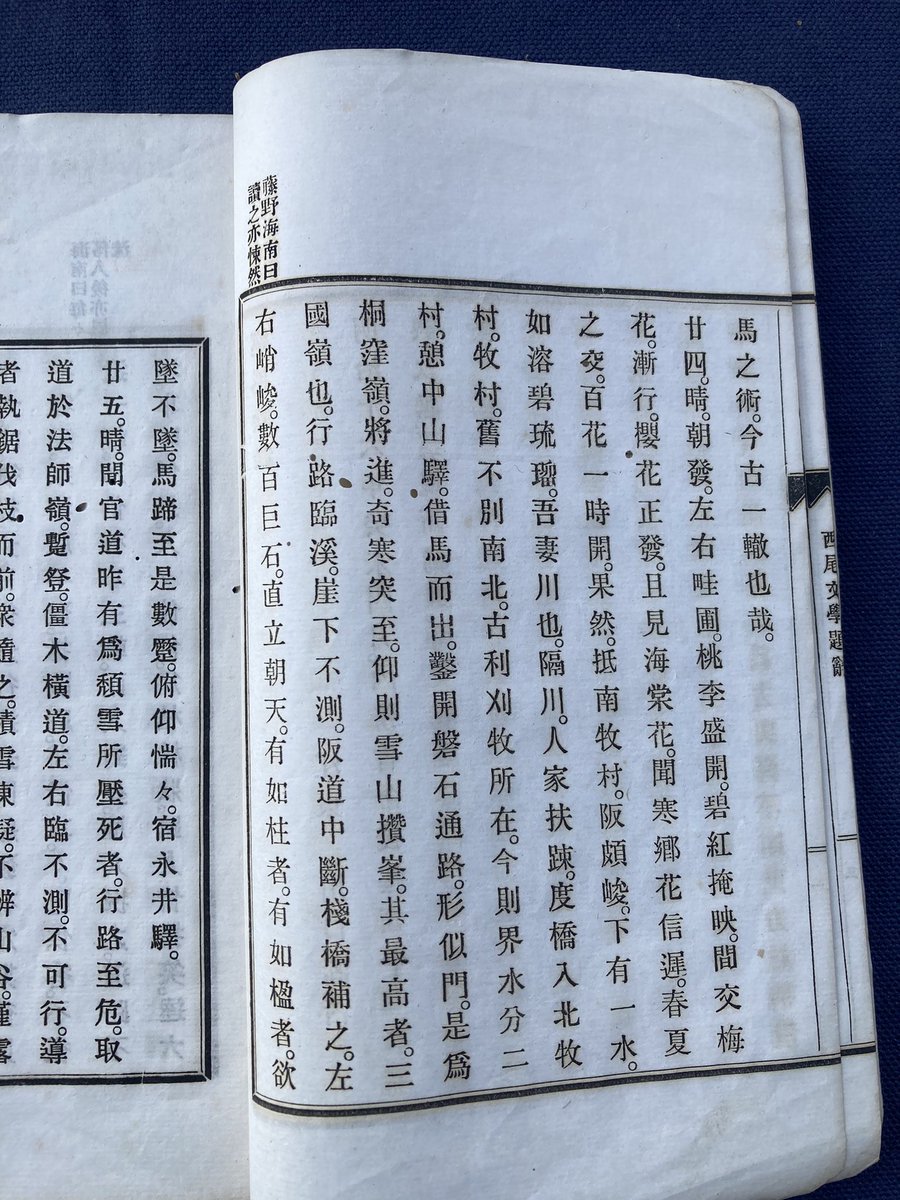 西尾文學題辭
馬之術。今古一轍也哉。
廿四。晴。朝發。左右畦圃。桃李盛開。碧紅掩映。間交梅
花。漸行。櫻花正發。且見海棠花。聞寒鄉花信遲。春夏
之交。百花一時開。果然。抵南牧村。阪頗峻。下有一水。
如溶碧琉瑠。吾妻川也。隔川。人家扶踈。度橋入北牧
村。牧村。舊不別南北。古利刈牧所在。今則界水分二
村。憩中山驛。借馬而出。鑿開磐石通路。形似門。是爲
桐窪嶺。將進。奇寒突至。仰則雪山攢峯。其最高者。三
國嶺也。行路臨溪。崖下不測。阪道中斷。棧橋補之。左
右峭峻。數百巨石。直立朝天。有如柱者。有如楹者。欲
藤野海南曰
讀之亦悚然
墜不墜。馬蹄至是數蹙。俯仰惴々。宿永井驛。
廿五。晴。聞官道昨有爲頽雪所壓死者。行路至危。取
道於法師嶺。蹔登。僵木橫道。左右臨不測。不可行。導
者執鋸伐枝而前。衆隨之。積雪凍凝。不辨山谷。僅露